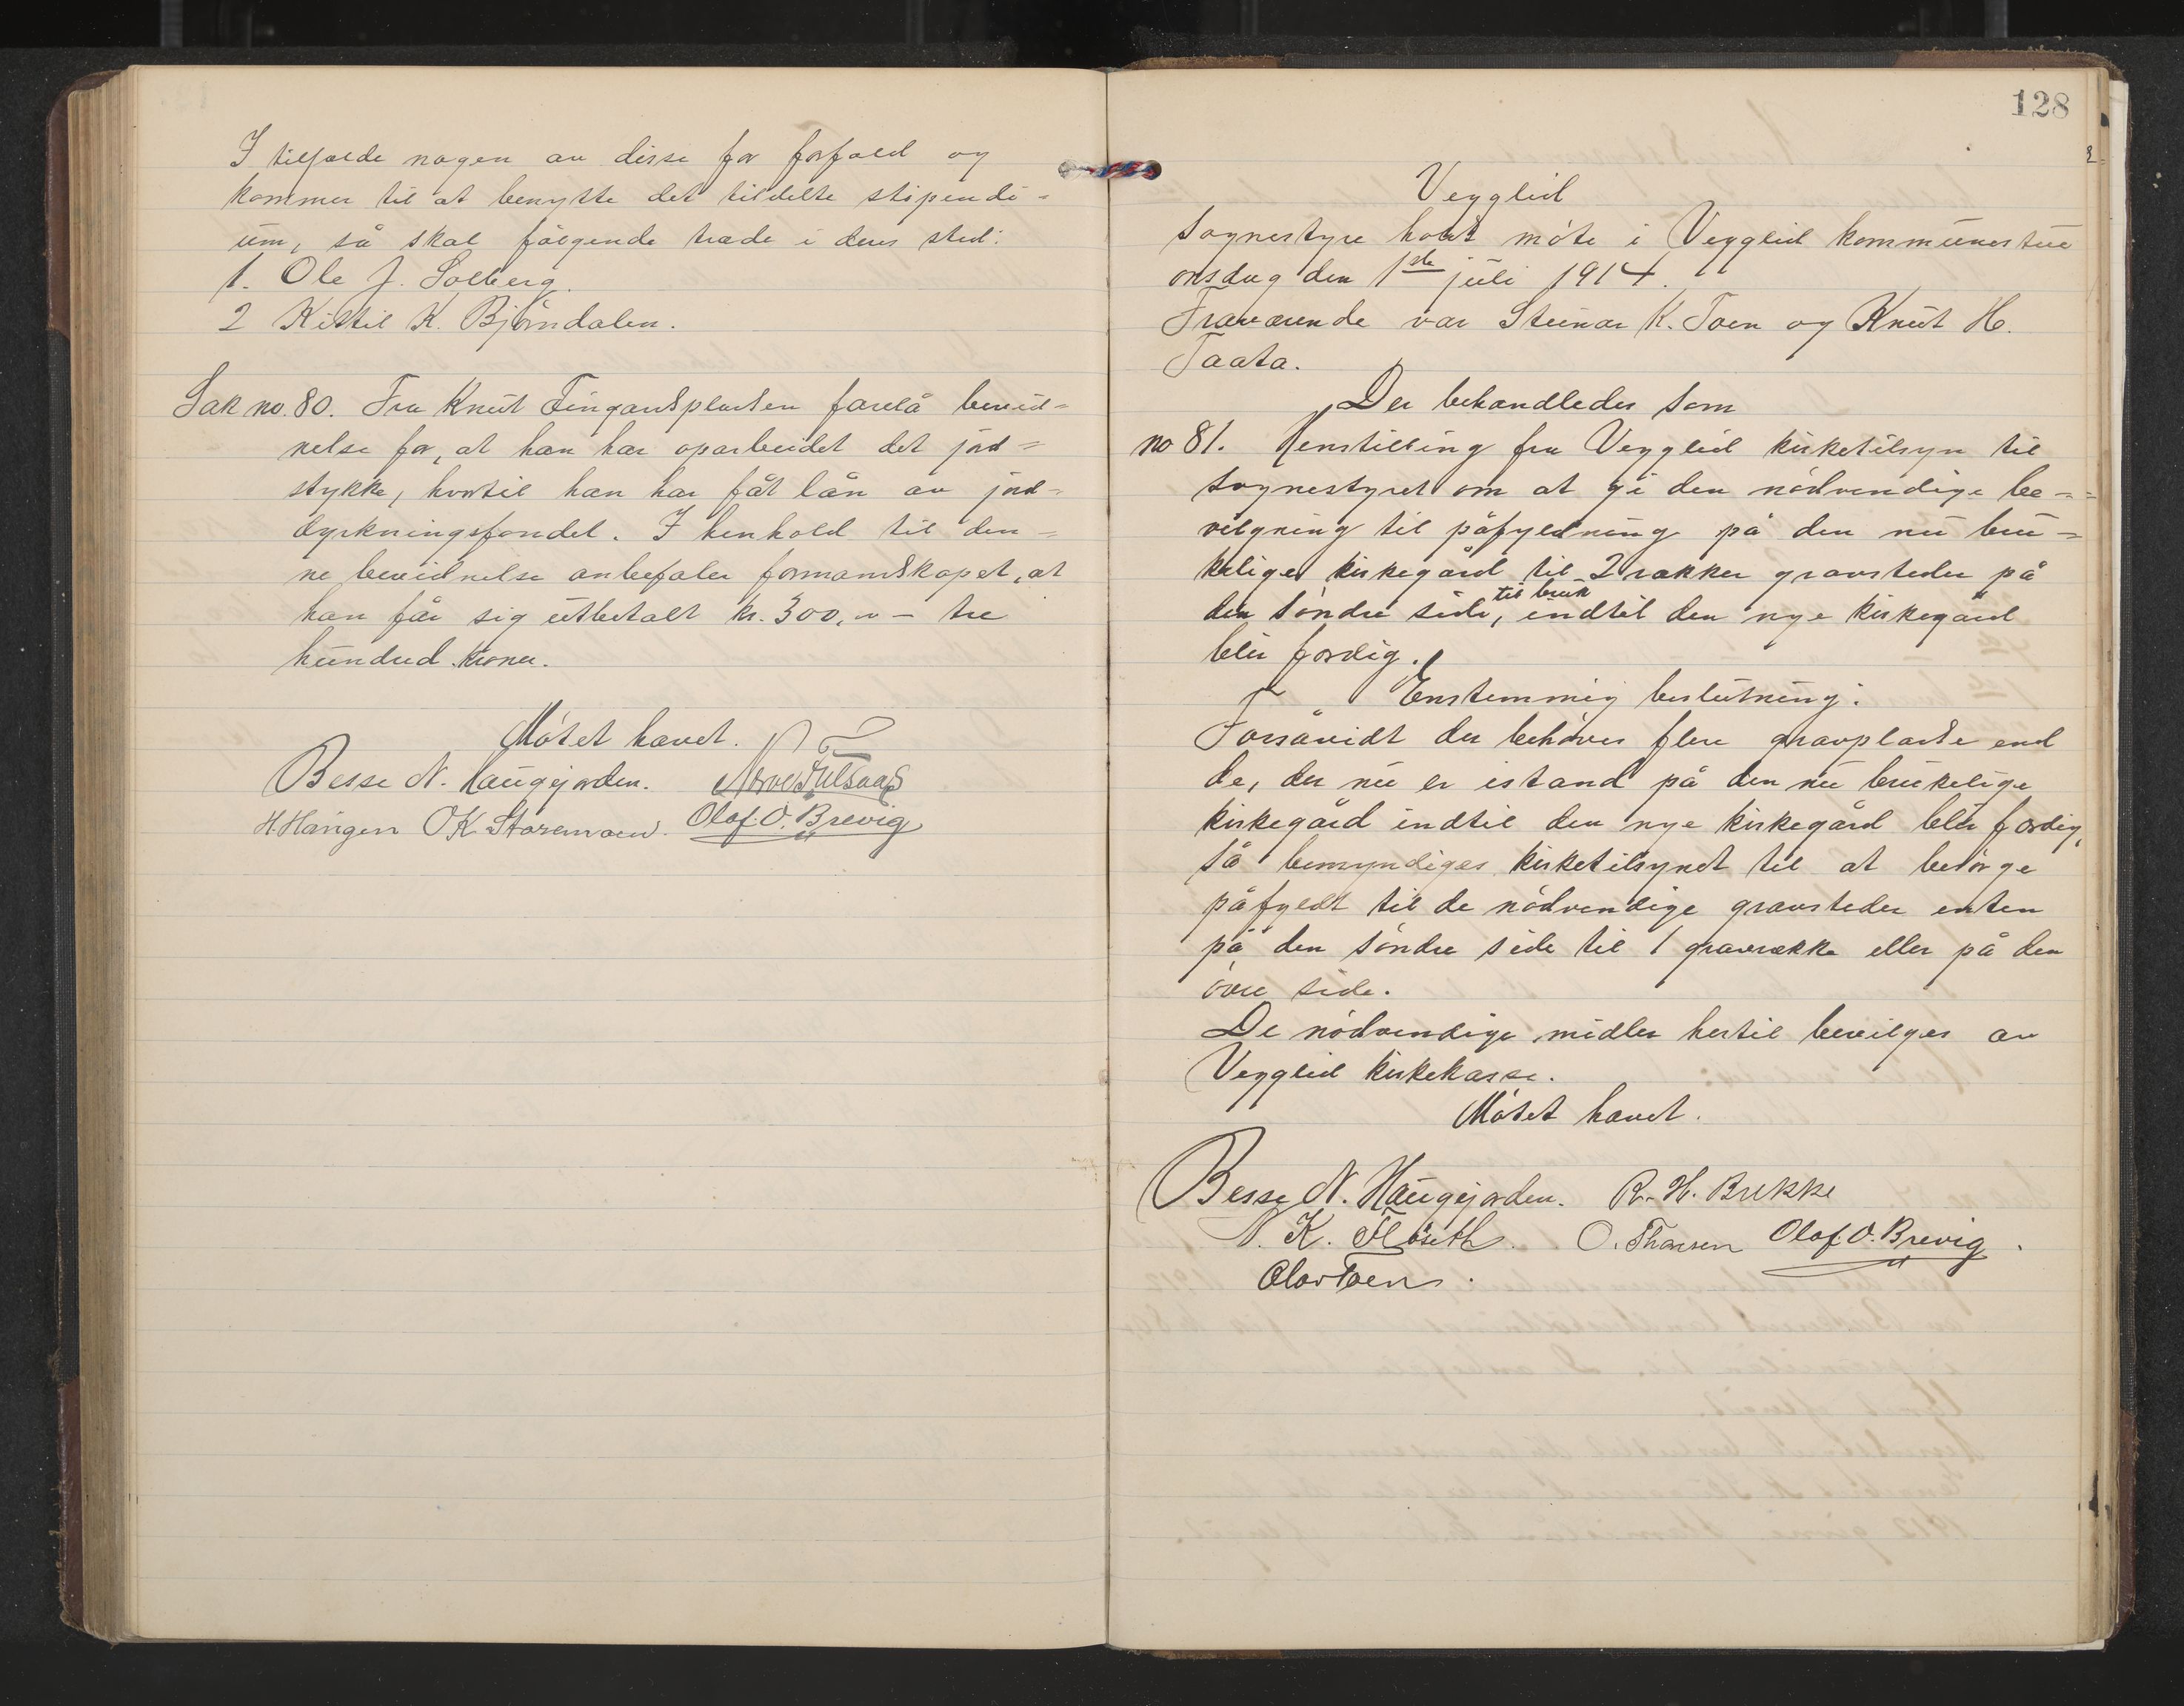 I tilfælde nogen av disse får forfald og
kommer til at benytte det tildelte stipendi=
um, så skal følgende træde i deres sted:
1. Ole J. Solberg.
2 Kittil K. Bjørndalen.
Sak no. 80. Fra Knut Fingardspladsen forelå bevid=
nelse for, at han har oparbeidet det jord=
stykke, hvortil han har fåt lån av jord=
dyrkningsfondet. I henhold til den=
ne bevidnelse anbefaler formandskapet, at
han får sig utbetalt kr. 300,00 – tre
hundred kroner.
Møtet hævet.
Besse N. Haugejorden.
H. Haugen O K Staremoen. Olaf. O. Brevig
128
Veggliid
Sognestyre holdt møte i Veggliid kommunestue
onsdag den 1ste juli 1914.
Fraværende var Steinar K. Toen og Knut H.
Taata.
Der behandledes som
no 81. Henstilling fra Veggliid kirketilsyn til
sognestyret om at gi den nødvendige be=
vilgning til påfyldning på den nu bru=
kelige kirkegård til 2 rækker gravsteder på
til bruk
den søndre side, indtil den nye kirkegård
blir færdig.
Enstemmig beslutning:
Forsåvidt der behøves flere gravpladse end
de, der nu er istand på den nu brukelige
kirkegård indtil den nye kirkegård blir færdig,
så bemyndiges kirketilsynet til at besørge
påfyldt til de nødvendige gravsteder enten
på den søndre side til 1 gravrække eller på den
øvre side.
De nødvendige midler hertil bevilges av
Veggliid kirkekasse.
Møtet hævet.
Besse N. Haugejorden. R. H. Brekke
N. K. Flåseth. O. Thorsen Olaf. O. Brevig.
Olav Toen.